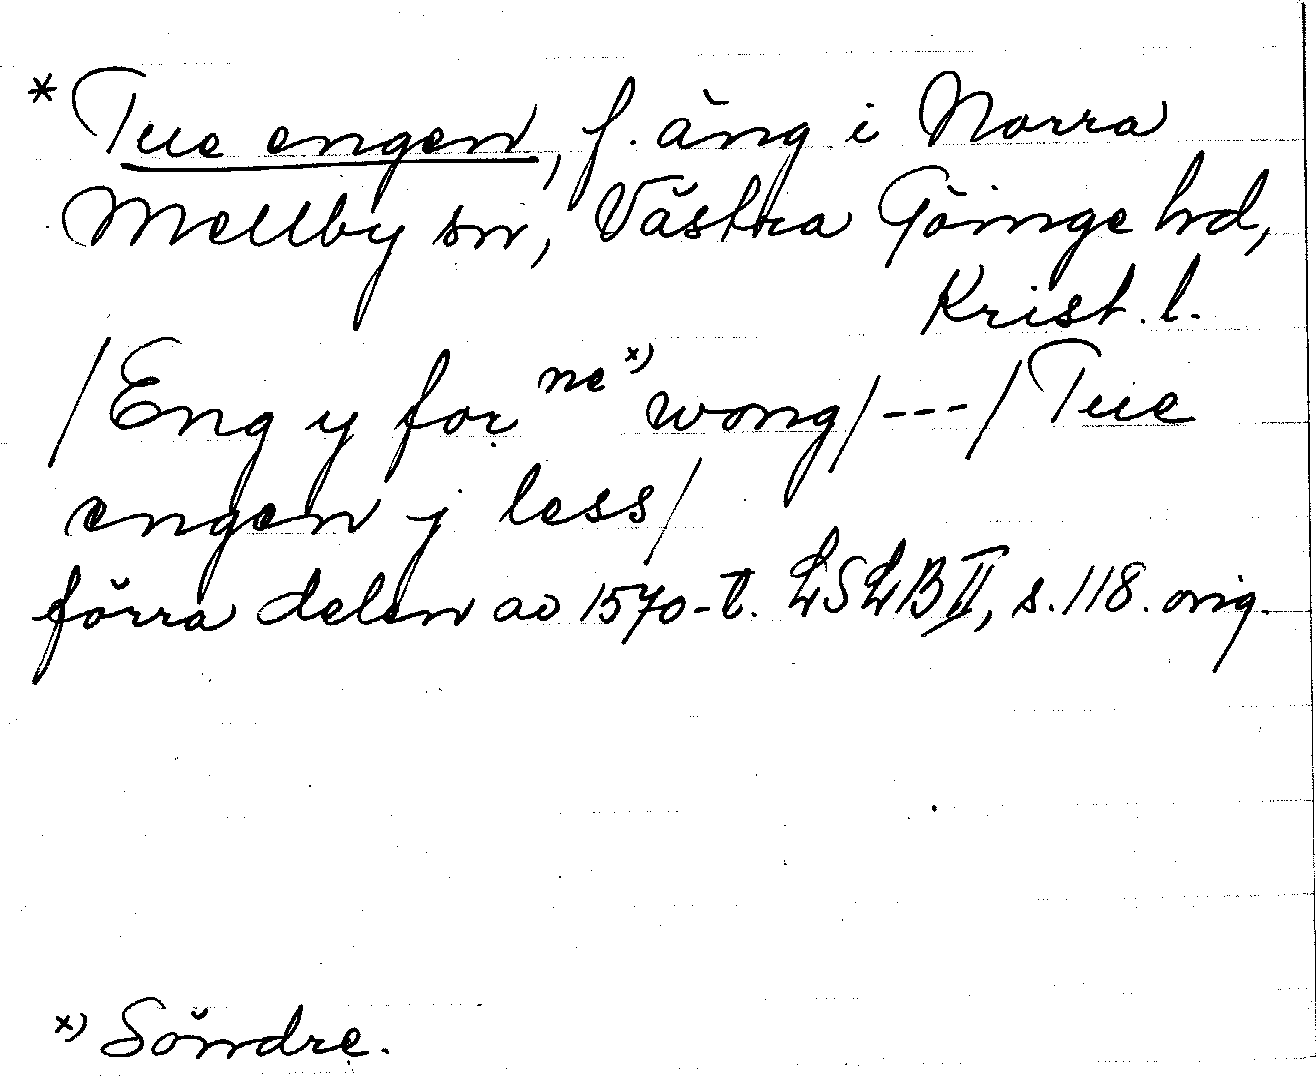 * Tue engen, f. äng i Norra
Mellby sn, Västra Göinge hd,
Krist. l.
/Eng y for ne x) wong/---/Tue
engen j less/
förra delen av 1570-t. LSLB II, s. 118. orig.
x) Söndre.